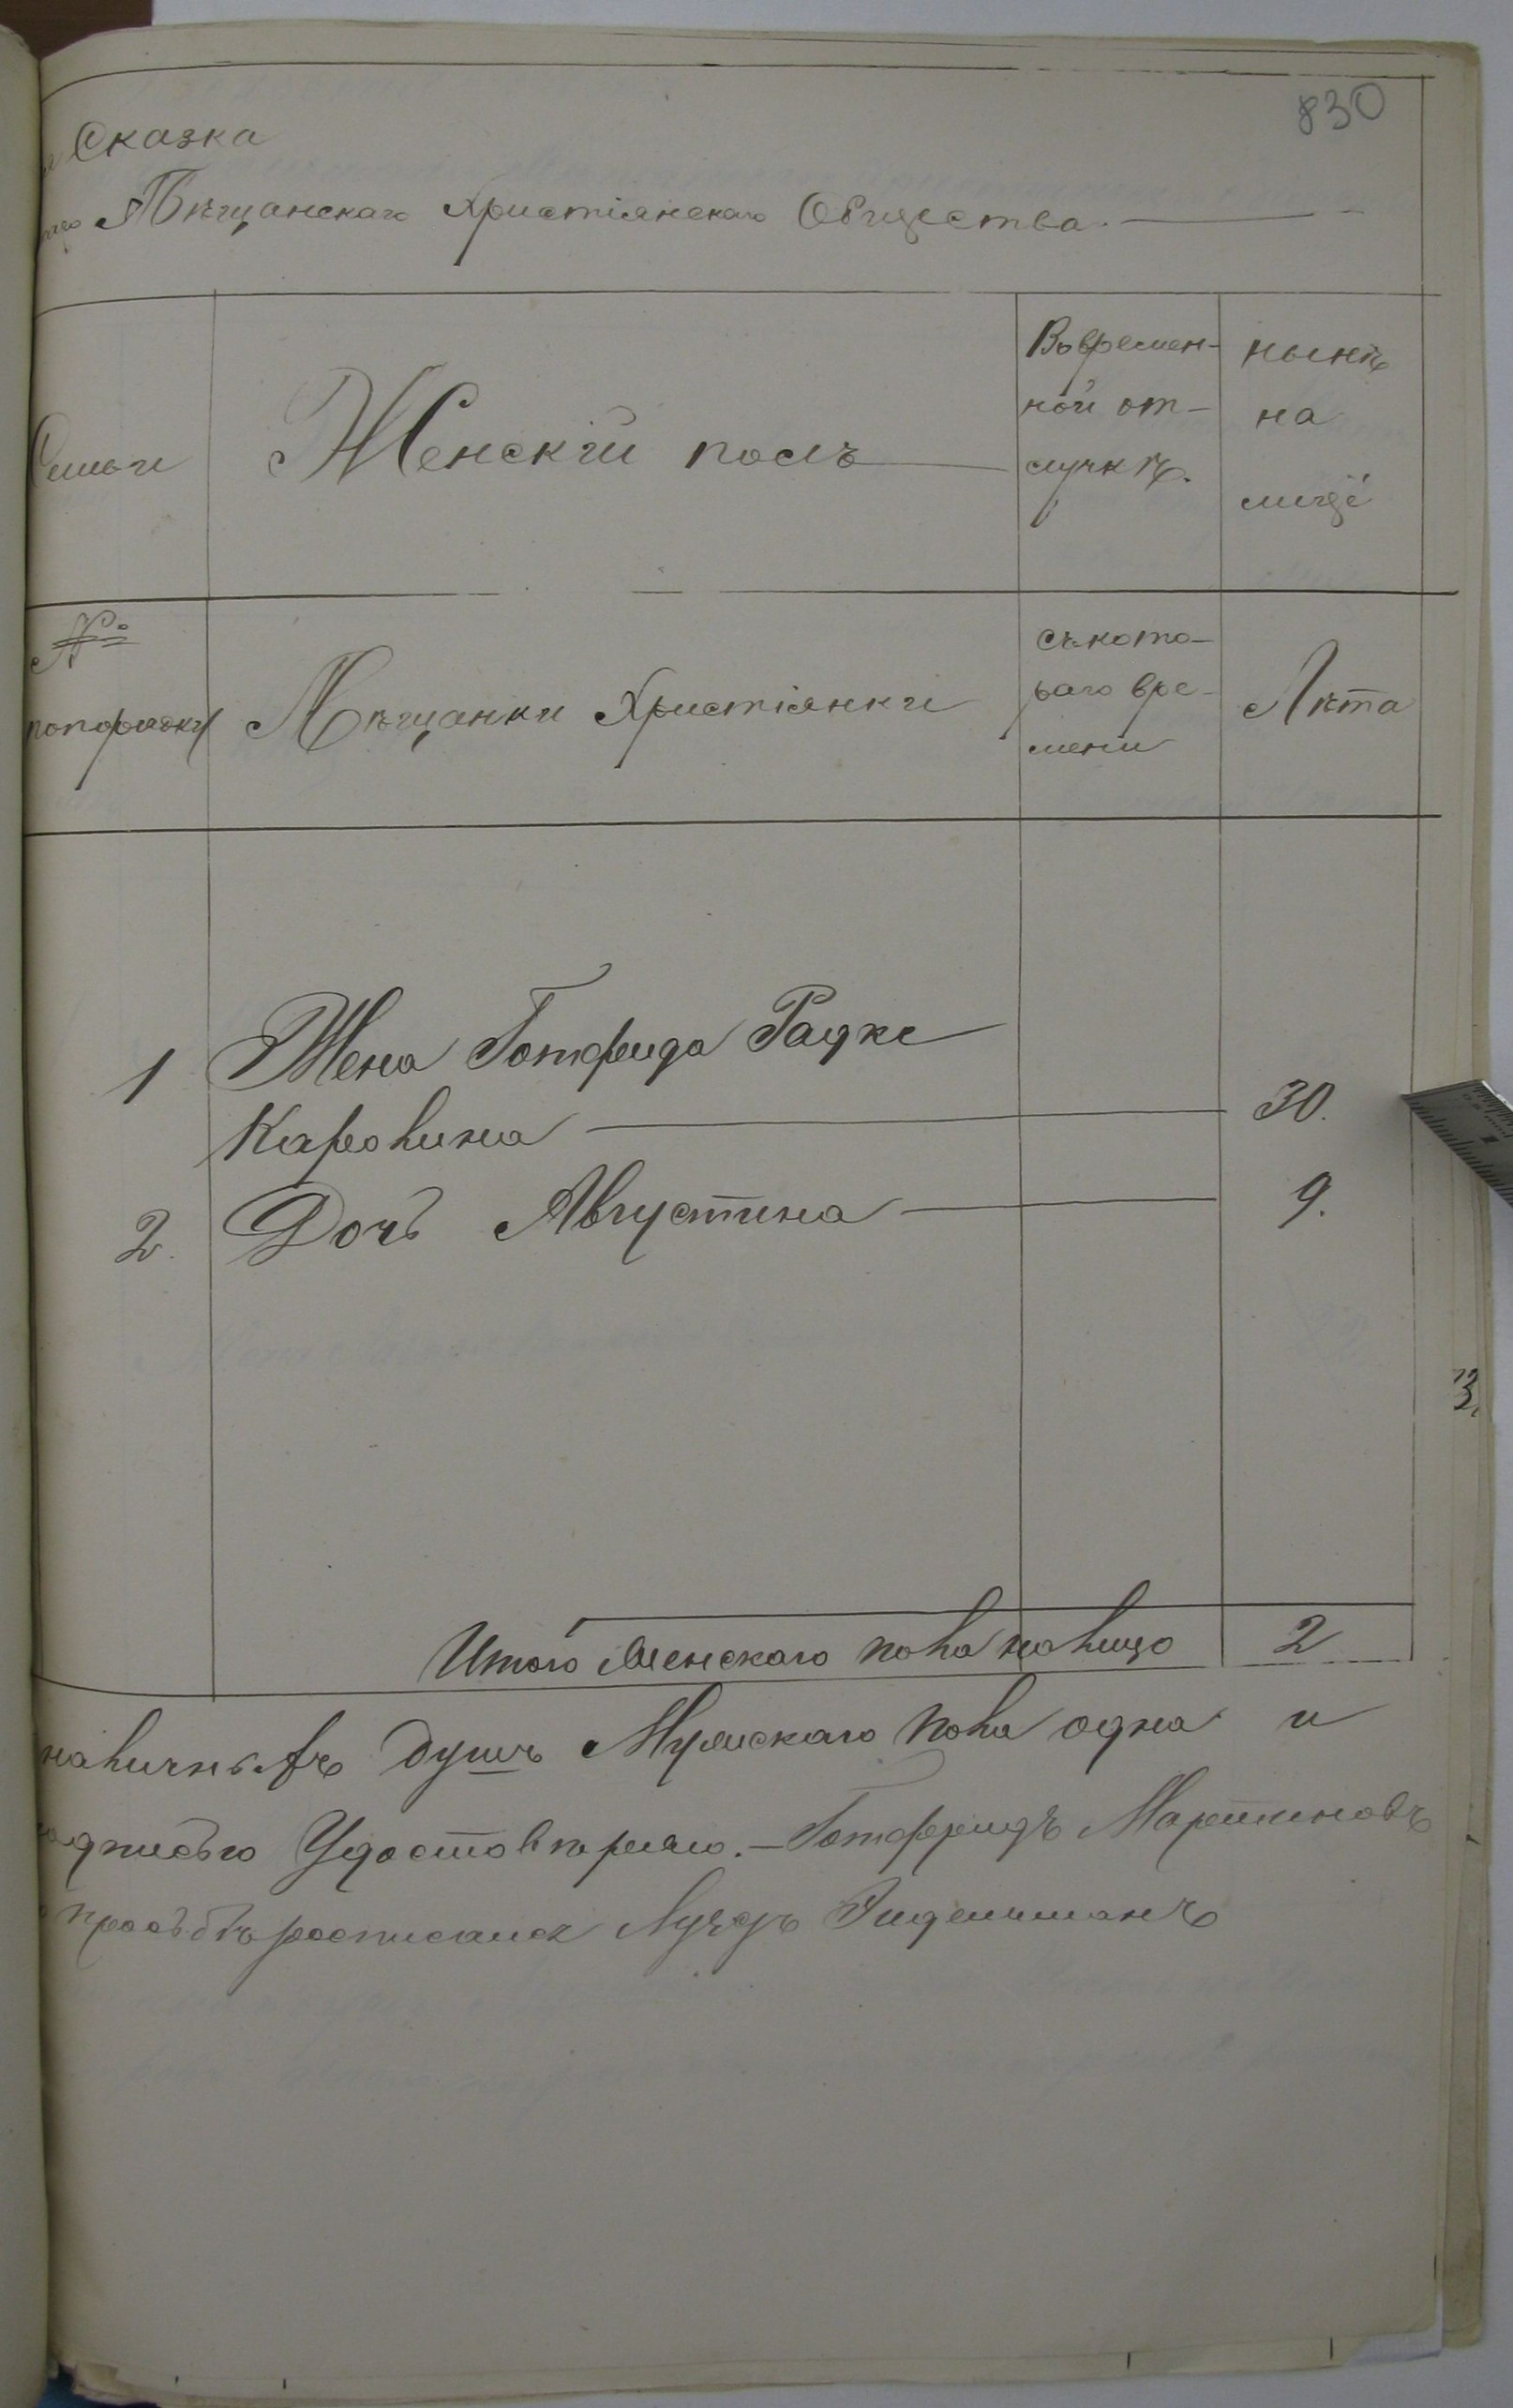 830
Сказка
Мѣщанскаго Христіянскаго Общества.
Семьи
Женскій полъ
Во времен-
ной от-
лучкѣ.
нынѣ
на
лицё
№
попорядку
Мѣщанки Христіянки
съ кото-
раго вре-
мени
Лѣта
1 Жена Готфрида Радке
Каролина 30.
2. Дочь Августина 9.
Итого женскаго пола на лицо 2
наличныхъ душъ Мужскаго пола одна и
подписью Удостовѣряю. - Готфридъ Мартиновъ
прозьбѣ росписался
3